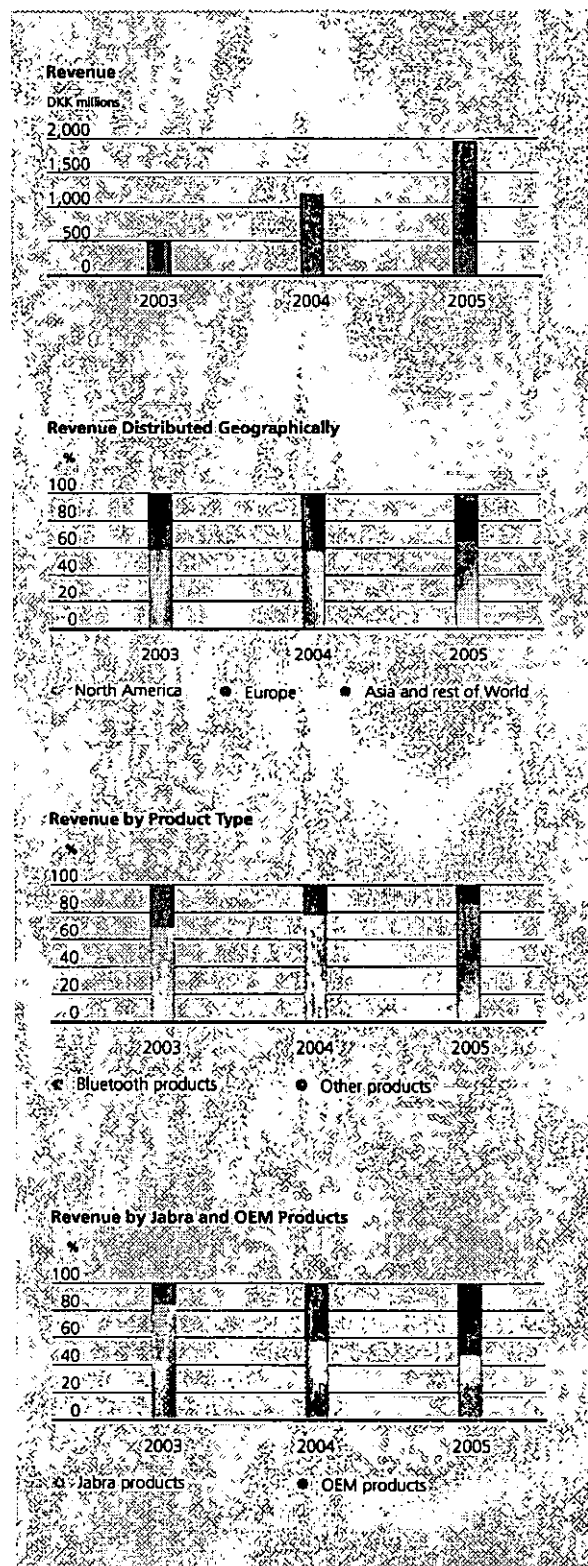 Revenue
DKK millions
2,000
1,500
1,000
500
0
2003 2004 2005
Revenue Distributed Geographically
%
100
80
60
40
20
0
2003 2004 2005
North America Europe Asia and rest of World
Revenue by Product Type
%
100
80
60
40
20
0
2003 2004 2005
Bluetooth products Other products
Revenue by Jabra and OEM Products
%
100
80
60
40
20
0
2003 2004 2005
Jabra products OEM products